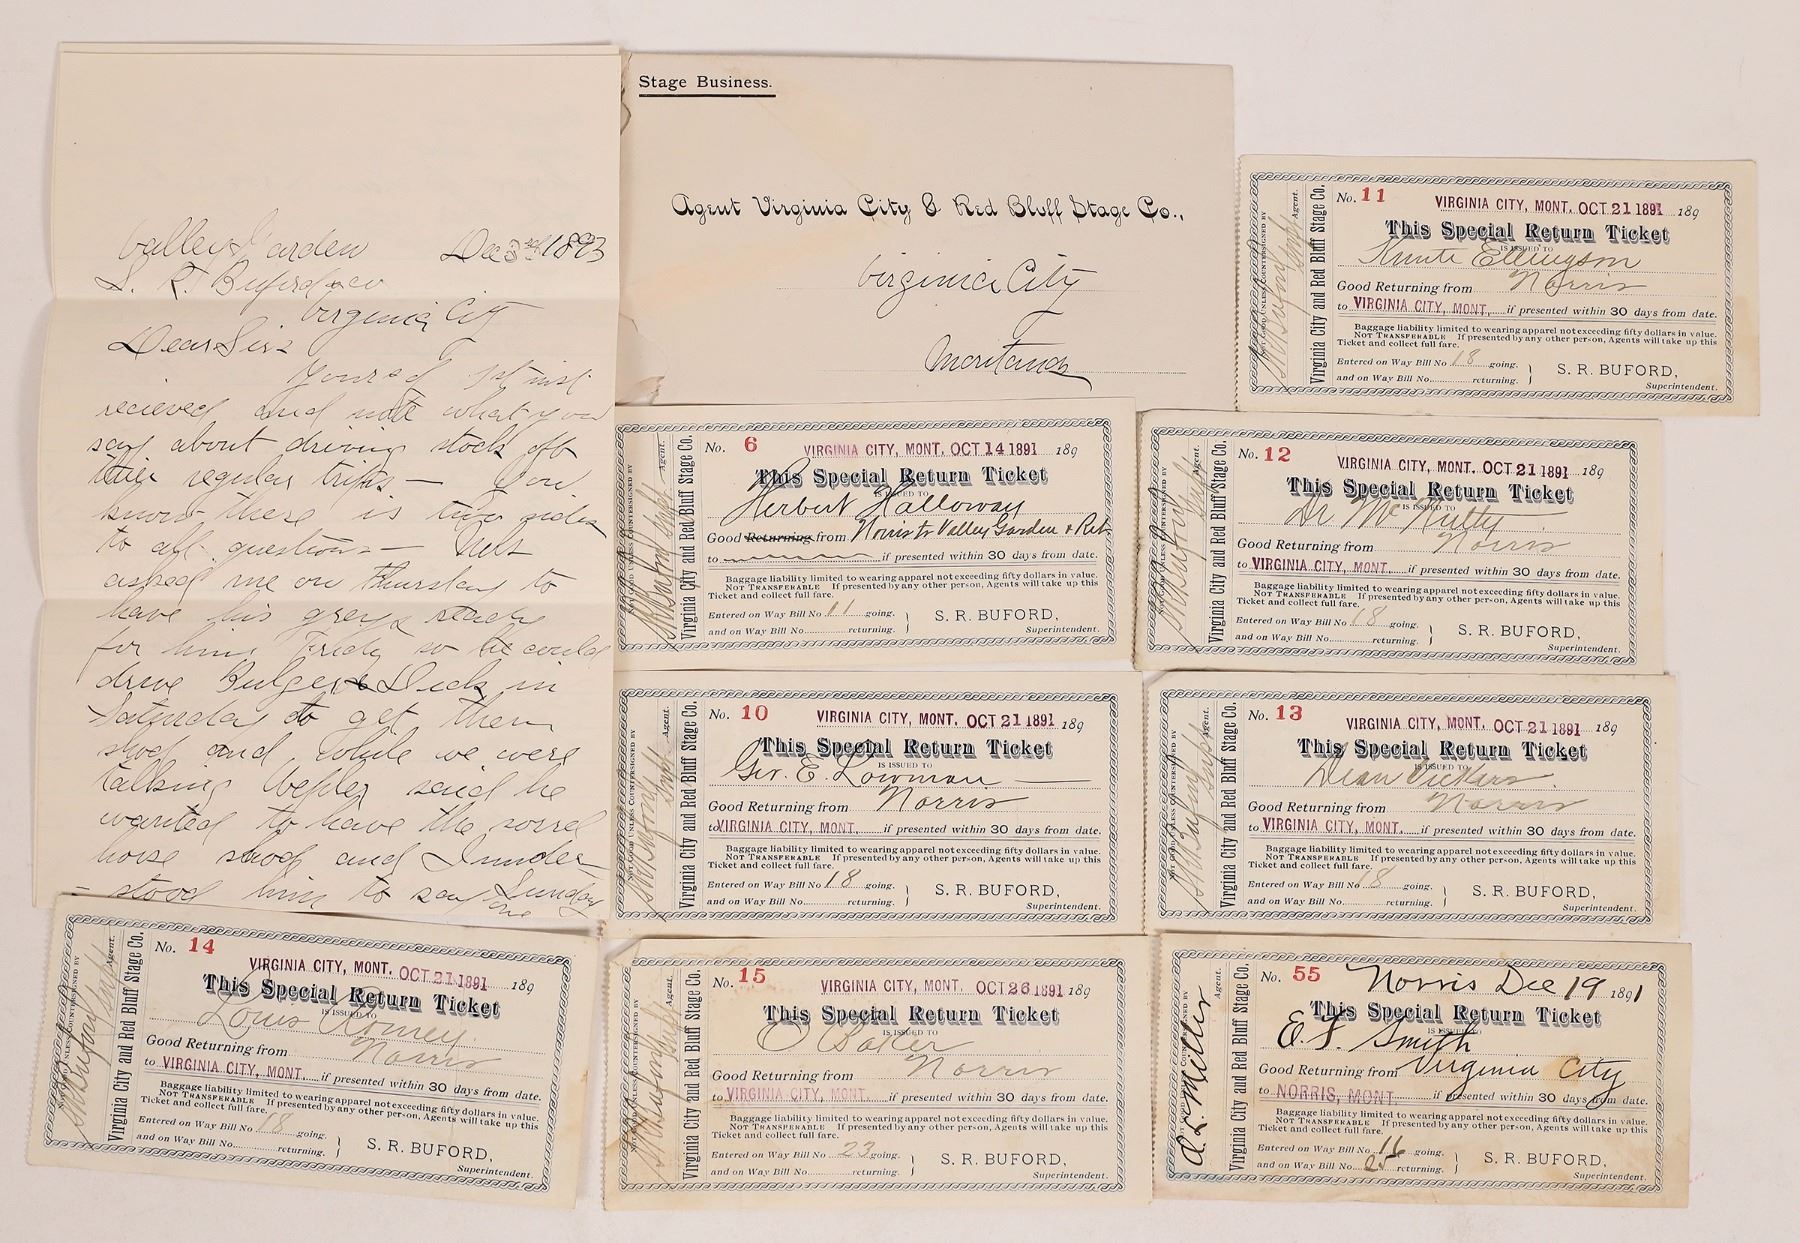 Valley Garden Dec 3rd 1893
S. R. Buford & co
Virginia City
Dear Sir -
Yours of 1st inst
recieved and note what you
say about driving stock off
their regular trips - You
know there is two sides
to all questions -
asked me on Thursday to
have his greys ready
for him Friday so he could
drive Bulger & Dick in
Saturday to get them
shod and while we were
talking said he
wanted to have the sorrel
horse shod and I under
- stood him to say Sunday
Stage Business.
Agent Virginia City & Red Bluff Stage Co.,
Virginia City
Montana
No. 11
VIRGINIA CITY, MONT. OCT 21 1891 189
This Special Return Ticket
IS ISSUED TO
Knute Ellingson
Good Returning from Norris
to VIRGINIA CITY, MONT. if presented within 30 days from date.
Baggage liability limited to wearing apparel not exceeding fifty dollars in value.
NOT TRANSFERABLE If presented by any other person, Agents will take up this
Ticket and collect full fare.
Entered on Way Bill No 18 going.
and on Way Bill No. returning.
S. R. BUFORD,
Superintendent.
NOT GOOD UNLESS COUNTERSIGNED BY
S R Buford Supt Agent.
Virginia City and Red Bluff Stage Co.
No. 6
VIRGINIA CITY, MONT. OCT 14 1891 189
This Special Return Ticket
IS ISSUED TO
Herbert Halloway
Good Returning from Norris to Valley Garden & Ret
to if presented within 30 days from date.
Baggage liability limited to wearing apparel not exceeding fifty dollars in value.
NOT TRANSFERABLE If presented by any other person, Agents will take up this
Ticket and collect full fare.
Entered on Way Bill No 11 going.
and on Way Bill No. returning.
S. R. BUFORD,
Superintendent.
NOT GOOD UNLESS COUNTERSIGNED BY
S R Buford Supt Agent.
Virginia City and Red Bluff Stage Co.
No. 12
VIRGINIA CITY, MONT. OCT 21 1891 189
This Special Return Ticket
IS ISSUED TO
Dr McNulty
Good Returning from Norris
to VIRGINIA CITY, MONT. if presented within 30 days from date.
Baggage liability limited to wearing apparel not exceeding fifty dollars in value.
NOT TRANSFERABLE If presented by any other person, Agents will take up this
Ticket and collect full fare.
Entered on Way Bill No 18 going.
and on Way Bill No. returning.
S. R. BUFORD,
Superintendent.
NOT GOOD UNLESS COUNTERSIGNED BY
S R Buford Supt Agent.
Virginia City and Red Bluff Stage Co.
No. 10
VIRGINIA CITY, MONT. OCT 21 1891 189
This Special Return Ticket
IS ISSUED TO
Geo. E. Lowman
Good Returning from Norris
to VIRGINIA CITY, MONT. if presented within 30 days from date.
Baggage liability limited to wearing apparel not exceeding fifty dollars in value.
NOT TRANSFERABLE If presented by any other person, Agents will take up this
Ticket and collect full fare.
Entered on Way Bill No 18 going.
and on Way Bill No. returning.
S. R. BUFORD,
Superintendent.
NOT GOOD UNLESS COUNTERSIGNED BY
S R Buford Supt Agent.
Virginia City and Red Bluff Stage Co.
No. 13
VIRGINIA CITY, MONT. OCT 21 1891 189
This Special Return Ticket
IS ISSUED TO
Dean Vickers
Good Returning from Norris
to VIRGINIA CITY, MONT. if presented within 30 days from date.
Baggage liability limited to wearing apparel not exceeding fifty dollars in value.
NOT TRANSFERABLE If presented by any other person, Agents will take up this
Ticket and collect full fare.
Entered on Way Bill No 18 going.
and on Way Bill No. returning.
S. R. BUFORD,
Superintendent.
NOT GOOD UNLESS COUNTERSIGNED BY
S R Buford Supt Agent.
Virginia City and Red Bluff Stage Co.
No. 14
VIRGINIA CITY, MONT. OCT 21 1891 189
This Special Return Ticket
IS ISSUED TO
Louis Romey
Good Returning from Norris
to VIRGINIA CITY, MONT. if presented within 30 days from date.
Baggage liability limited to wearing apparel not exceeding fifty dollars in value.
NOT TRANSFERABLE If presented by any other person, Agents will take up this
Ticket and collect full fare.
Entered on Way Bill No 18 going.
and on Way Bill No. returning.
S. R. BUFORD,
Superintendent.
NOT GOOD UNLESS COUNTERSIGNED BY
S R Buford Supt Agent.
Virginia City and Red Bluff Stage Co.
No. 15
VIRGINIA CITY, MONT. OCT 26 1891 189
This Special Return Ticket
IS ISSUED TO
E Baker
Good Returning from Norris
to VIRGINIA CITY, MONT. if presented within 30 days from date.
Baggage liability limited to wearing apparel not exceeding fifty dollars in value.
NOT TRANSFERABLE If presented by any other person, Agents will take up this
Ticket and collect full fare.
Entered on Way Bill No. 23 going.
and on Way Bill No. returning.
S. R. BUFORD,
Superintendent.
NOT GOOD UNLESS COUNTERSIGNED BY
S R Buford Supt Agent.
Virginia City and Red Bluff Stage Co.
No. 55
Norris Dec 19 1891
This Special Return Ticket
IS ISSUED TO
E. F. Smith
Good Returning from Virginia City
to NORRIS, MONT. if presented within 30 days from date.
Baggage liability limited to wearing apparel not exceeding fifty dollars in value.
NOT TRANSFERABLE If presented by any other person, Agents will take up this
Ticket and collect full fare.
Entered on Way Bill No 16 going.
and on Way Bill No. 25 returning.
S. R. BUFORD,
Superintendent.
NOT GOOD UNLESS COUNTERSIGNED BY
A. L. Miller Agent.
Virginia City and Red Bluff Stage Co.